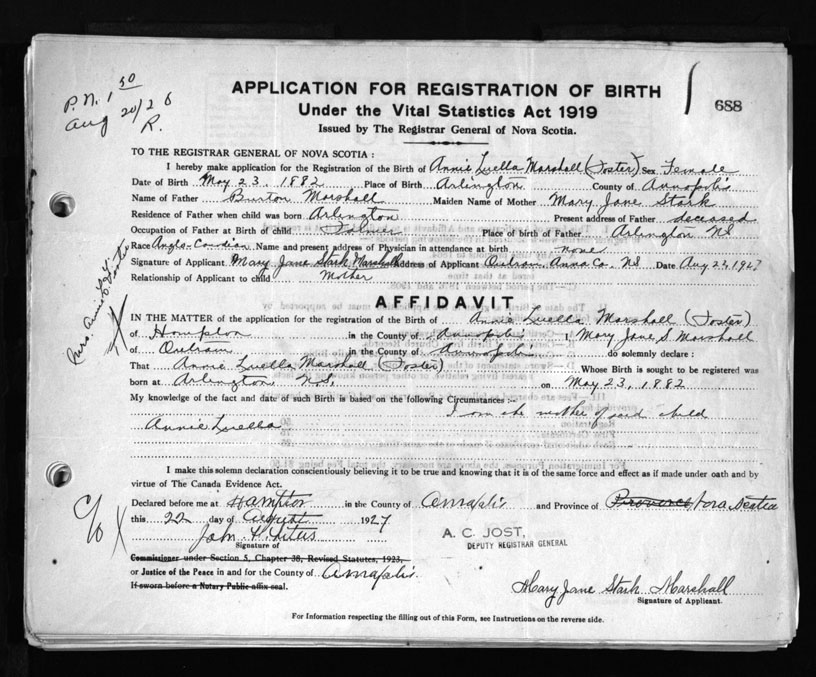 P.N. 1 50
Aug 20/26
R.
APPLICATION FOR REGISTRATION OF BIRTH
688
Under the Vital Statistics Act 1919
Issued by The Registrar General of Nova Scotia.
TO THE REGISTRAR GENERAL OF NOVA SCOTIA :
I hereby make application for the Registration of the Birth of Annie Luella Marshall (Foster) Sex Female
Date of Birth May 23, 1882 Place of Birth Arlington County of Annapolis
Name of Father Burton Marshall Maiden Name of Mother Mary Jane Stark
Residence of Father when child was born Arlington Present address of Father deceased
Occupation of Father at Birth of child Farmer Place of birth of Father Arlington NS
Race Anglo-Canadian Name and present address of Physician in attendance at birth none
Signature of Applicant Mary Jane Stark Marshall Address of Applicant Outram, Anna Co. NS Date Aug 22, 1927
Relationship of Applicant to child Mother
Mrs. Annie L. Foster
AFFIDAVIT
IN THE MATTER of the application for the registration of the Birth of Annie Luella Marshall (Foster)
of Hampton in the County of Annapolis I Mary Jane S Marshall
of Outram in the County of Annapolis do solemnly declare :
That Annie Luella Marshall (Foster) Whose Birth is sought to be registered was
born at Arlington N.S. on May 23, 1882
My knowledge of the fact and date of such Birth is based on the following Circumstances :-
I am the mother of said child
Annie Luella
I make this solemn declaration conscientiously believing it to be true and knowing that it is of the same force and effect as if made under oath and by
virtue of The Canada Evidence Act.
c/o
Declared before me at Hampton in the County of Annapolis and Province of Province Nova Scotia
this 22 day of August 1927
John F. Titus
A. C. JOST,
DEPUTY REGISTRAR GENERAL
Signature of
Commissioner under Section 5, Chapter 38, Revised Statutes, 1923,
or Justice of the Peace in and for the County of Annapolis.
If sworn before a Notary Public affix seal.
Mary Jane Stark Marshall
Signature of Applicant.
For Information respecting the filling out of this Form, see Instructions on the reverse side.